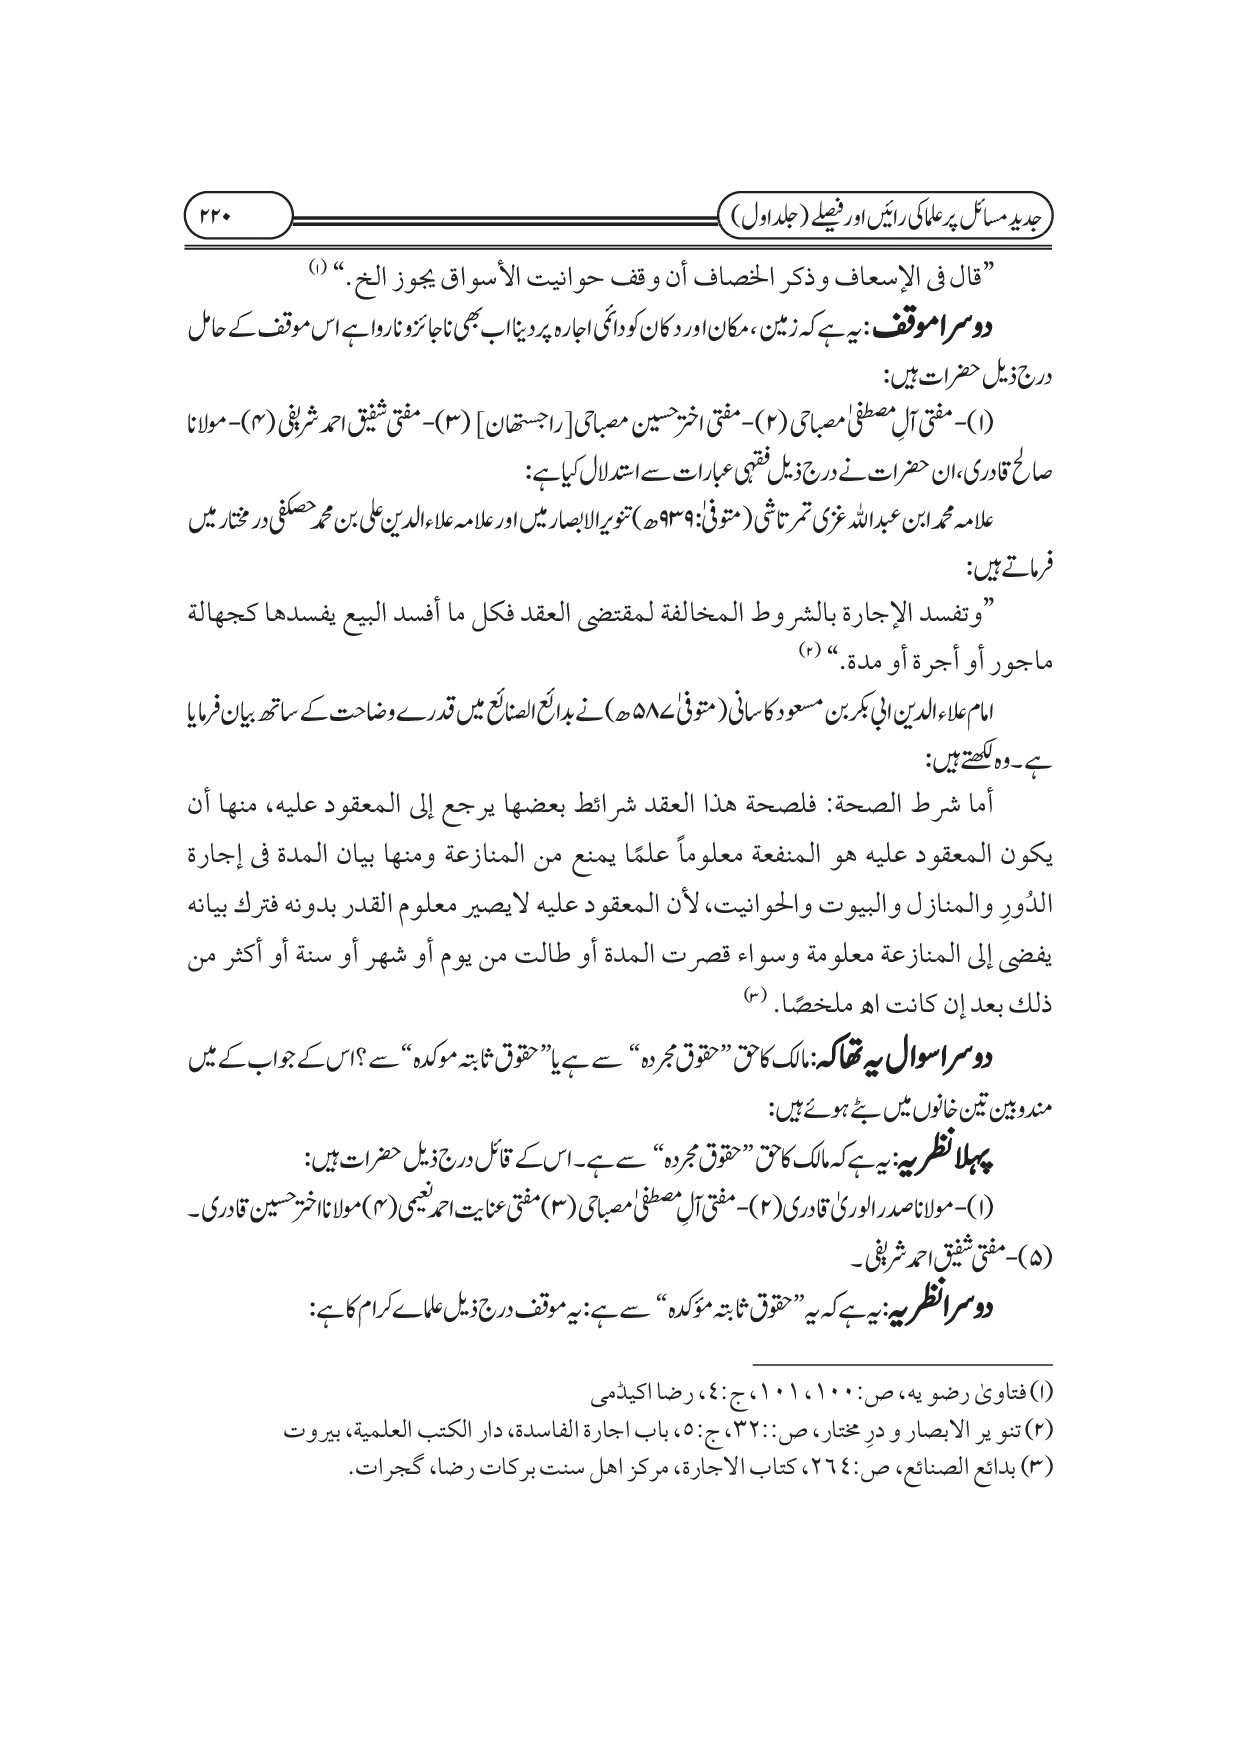 جدید مسائل پر علما کی رائیں اور فیصلے (جلد اول)
۲۲۰
”قال فی الإسعاف وذكر الخصاف أن وقف حوانيت الأسواق يجوز الخ.“ (۱)
دوسرا موقف: یہ ہے کہ زمین، مکان اور دکان کو دائمی اجارہ پر دینا اب بھی ناجائز و ناروا ہے اس موقف کے حامل
درج ذیل حضرات ہیں:
(۱)-مفتی آلِ مصطفیٰ مصباحی (۲)-مفتی اختر حسین مصباحی[راجستھان] (۳)-مفتی شفیق احمد شریفی (۴)-مولانا
صالح قادری، ان حضرات نے درج ذیل فقہی عبارات سے استدلال کیا ہے:
علامہ محمد ابن عبد اللہ غزی تمرتاشی (متوفیٰ:۹۳۹ھ) تنویر الابصار میں اور علامہ علاء الدین علی بن محمد حصکفی در مختار میں
فرماتے ہیں:
”وتفسد الإجارة بالشروط المخالفة لمقتضى العقد فكل ما أفسد البيع يفسدها كجهالة
ماجور أو أجرة أو مدة.“ (۲)
امام علاء الدین ابی بکر بن مسعود کاسانی (متوفیٰ ۵۸۷ھ) نے بدائع الصنائع میں قدرے وضاحت کے ساتھ بیان فرمایا
ہے۔ وہ لکھتے ہیں:
أما شرط الصحة: فلصحة هذا العقد شرائط بعضها يرجع إلى المعقود عليه، منها أن
يكون المعقود عليه هو المنفعة معلوماً علمًا يمنع من المنازعة ومنها بيان المدة فى إجارة
الدُورِ والمنازل والبيوت والحوانيت، لأن المعقود عليه لايصير معلوم القدر بدونه فترك بيانه
يفضى إلى المنازعة معلومة وسواء قصرت المدة أو طالت من يوم أو شهر أو سنة أو أكثر من
ذلك بعد إن كانت اھ ملخصًا. (۳)
دوسرا سوال یہ تھا کہ: مالک کا حق ”حقوق مجردہ“ سے ہے یا ”حقوق ثابتہ موکدہ“ سے؟ اس کے جواب کے میں
مندوبین تین خانوں میں بٹے ہوئے ہیں:
پہلا نظریہ: یہ ہے کہ مالک کا حق ”حقوق مجردہ“ سے ہے۔ اس کے قائل درج ذیل حضرات ہیں:
(۱)-مولانا صدر الوریٰ قادری (۲)-مفتی آلِ مصطفیٰ مصباحی (۳) مفتی عنایت احمد نعیمی (۴) مولانا اختر حسین قادری۔
(۵)-مفتی شفیق احمد شریفی۔
دوسرا نظریہ: یہ ہے کہ یہ ”حقوق ثابتہ مؤکدہ“ سے ہے: یہ موقف درج ذیل علماے کرام کا ہے:
(۱) فتاویٰ رضویہ، ص:۱۰۰، ۱۰۱، ج:٤، رضا اکیڈمی
(۲) تنویر الابصار و درِ مختار، ص::۳۲، ج:٥، باب اجارة الفاسدة، دار الكتب العلمية، بيروت
(۳) بدائع الصنائع، ص:٢٦٤، كتاب الاجارة، مركز اهل سنت بركات رضا، گجرات.